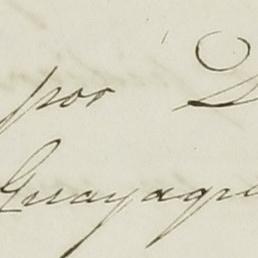 por D
Guayaqu